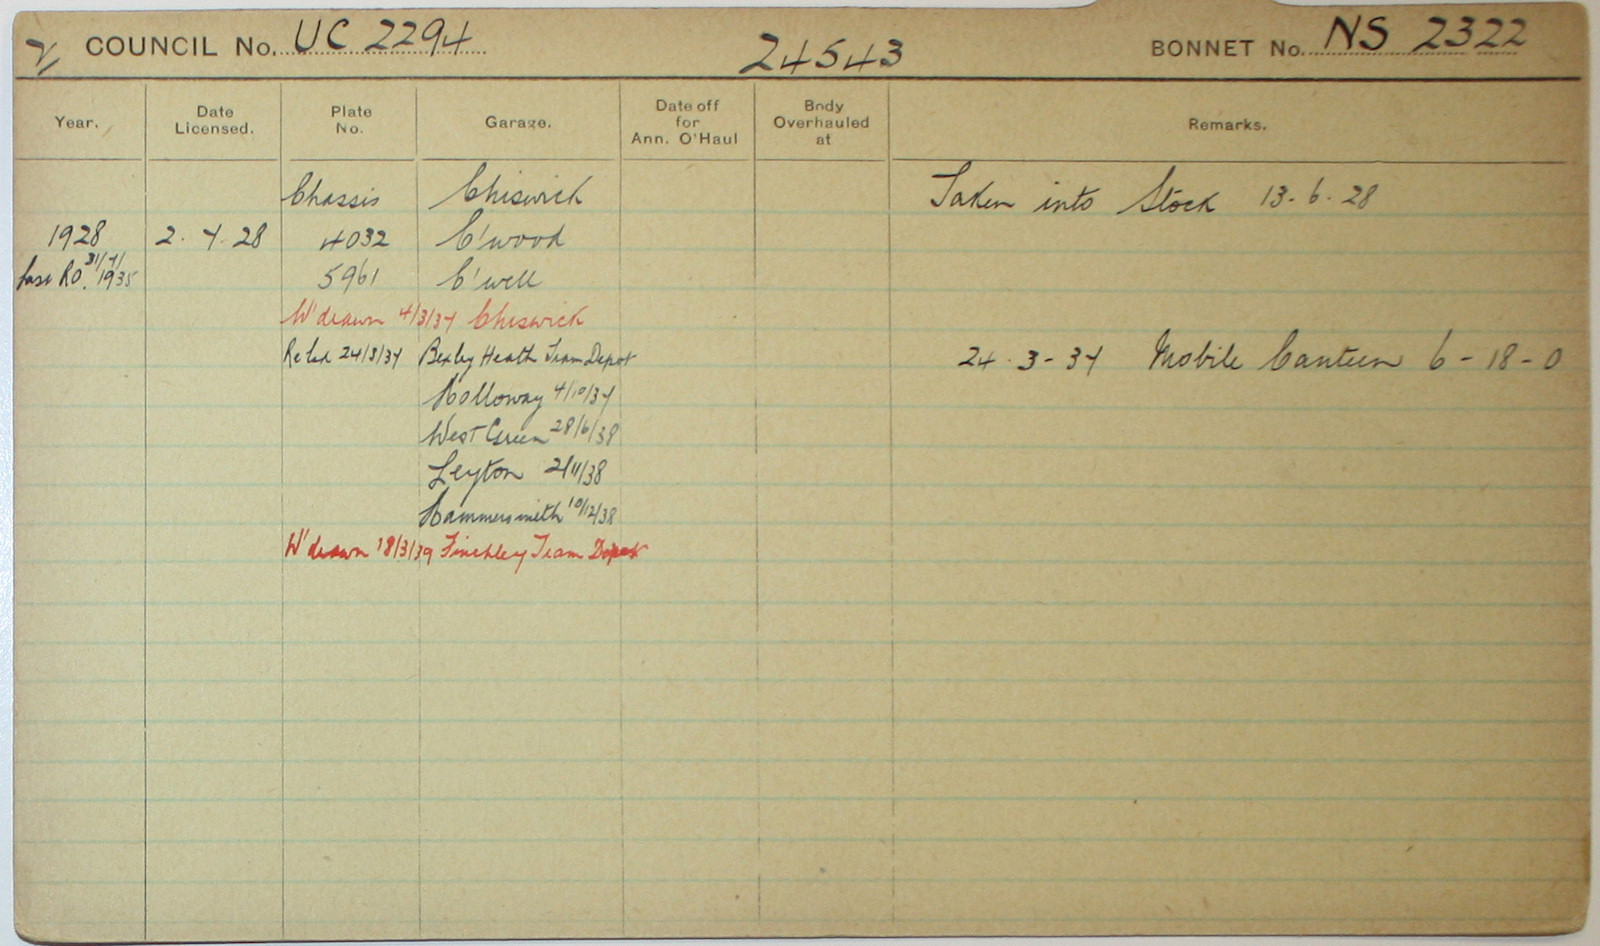 COUNCIL No. UC 2294 24543 BONNET No. NS 2322
Year. Date Licensed. Plate No. Garage. Date off for Ann. O'Haul Body Overhauled at Remarks.
Chassis Chiswick Taken into Stock 13-6-28
1928 2.7.28 4032 C'wood
31/7/1935 5961 C'well
W'drawn 4/3/37 Chiswick
24/3/37 Bexley Heath Tram Depot 24-3-37 Mobile Canteen 6-18-0
Holloway 4/10/37
West Green 28/6/38
Leyton 2/11/38
Hammersmith 10/12/38
W'drawn 18/3/39 Finchley Tram Depot